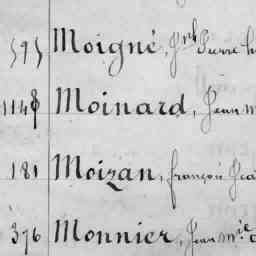 595 Moigné, Jph Pierre
1148 Moinard, Jean M
181 Moizan, françois Jea
376 Monnier, Jean Mie